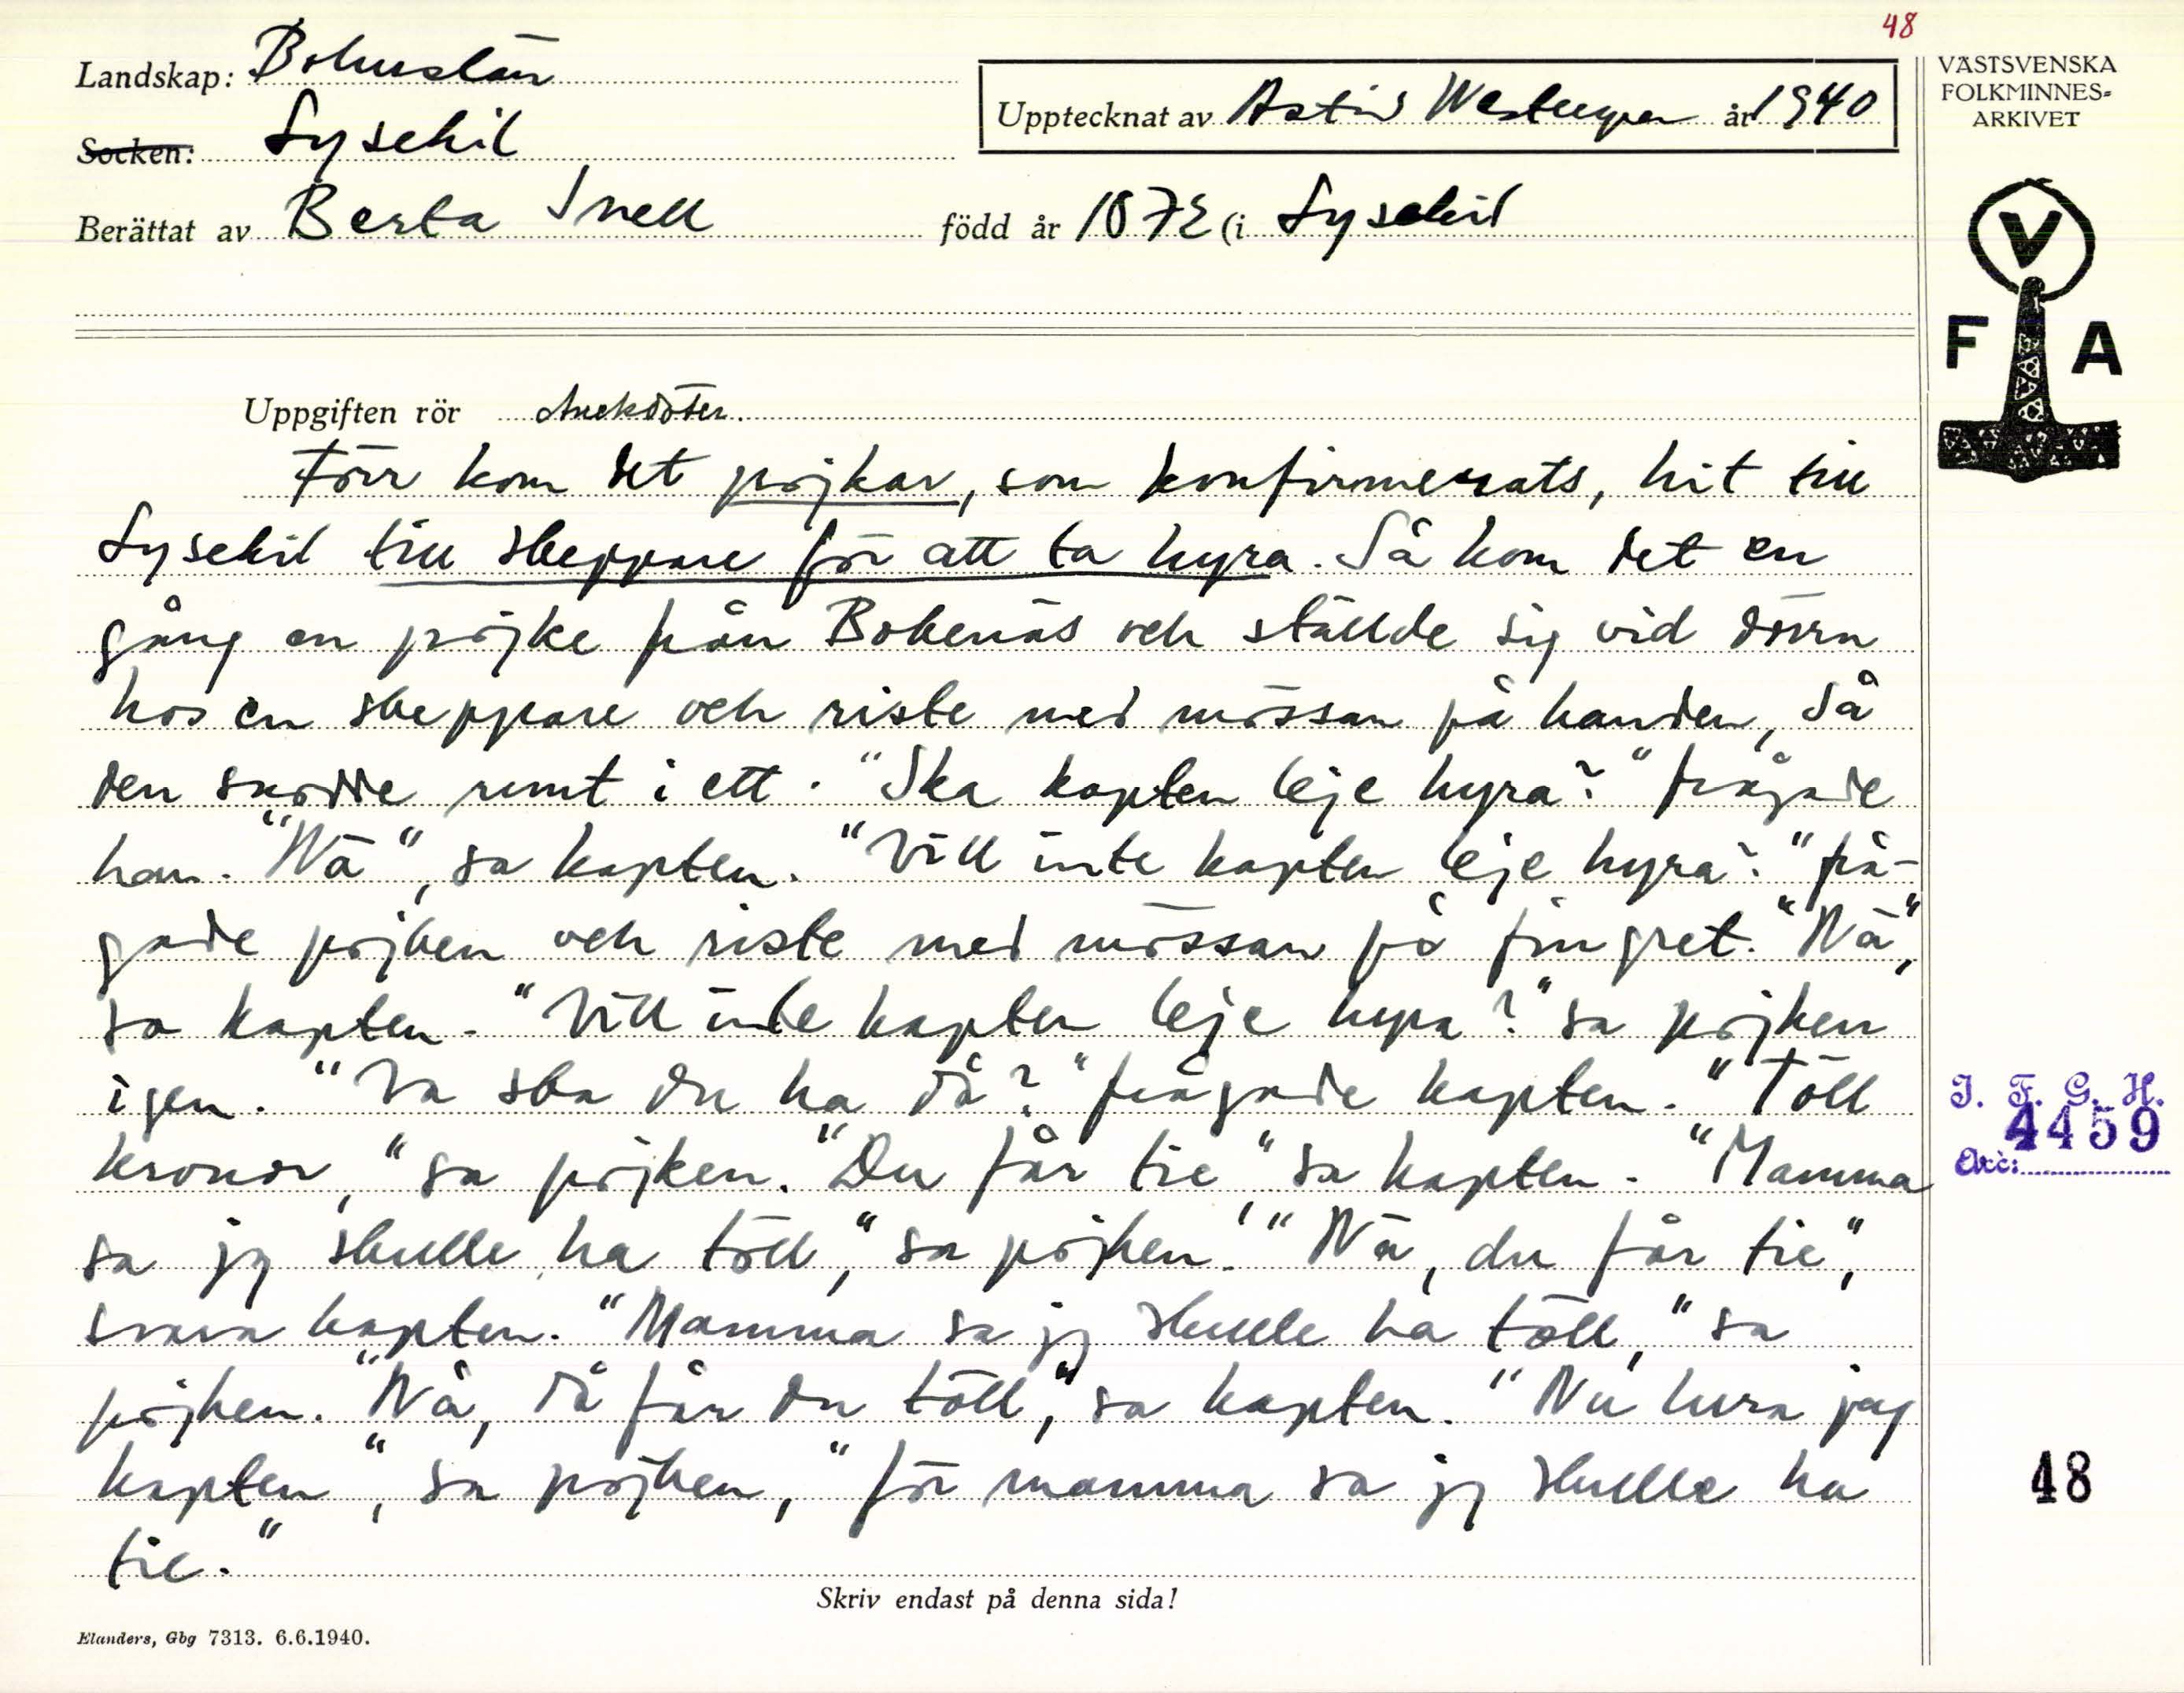 48
Landskap: Bohuslän
Socken: Lysekil
Upptecknat av Astrid år 1940
Berättat av Berta Snell född år 1872 (i Lysekil
VÄSTSVENSKA
FOLKMINNES-
ARKIVET
V
F A
Uppgiften rör Anekdoter.
Förr kom det pojkar, som konfirmerats, hit till
Lysekil till skeppare för att ta hyra. Så kom det en
gång en pöjke från Bokenäs och ställde sig vid dörrn
hos en skeppare och riste med mössan på handen, så
den snodde runt i ett. "Ska kapten leje hyra?" frågade
han. "Nä", sa kapten. "Vill inte kapten leje hyra?" frå-
gade pöjken och riste med mössan på fingret. "Nä",
sa kapten. "Vill inte kapten leje hyra?" sa pöjken
igen. "Va ska du ha då?" frågade kapten. "Töll
kronor," sa pöjken. "Du får tie" sa kapten. "Mamma
sa jg skulle ha töll," sa pöjken. "Nä, du får tie",
svara kapten. "Mamma sa jg skulle ha töll," sa
pöjken. "Nå, då får du töll", sa kapten. "Nu lura jag
kapten", sa pöjken, "för mamma sa jg skulle ha
tie."
Skriv endast på denna sida!
Elanders, Gbg 7313. 6.6.1940.
I. F. G. H.
4459
Acc:
48